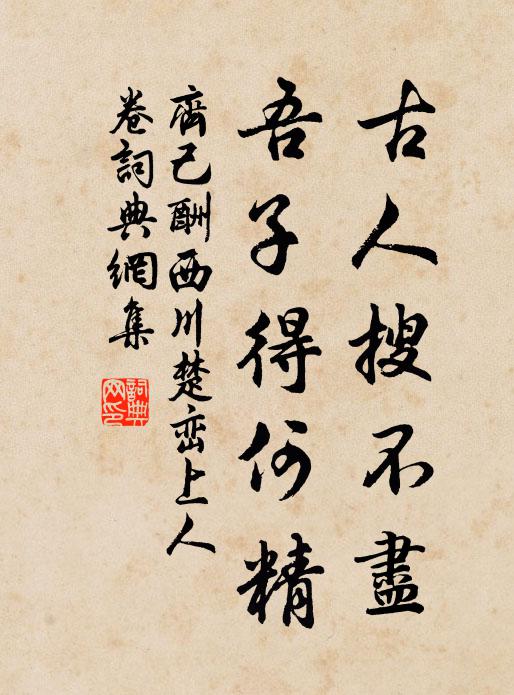 古人搜不盡
吾子得何精
齊己酬西川楚巒上人
卷詞典網集
詞典
网印